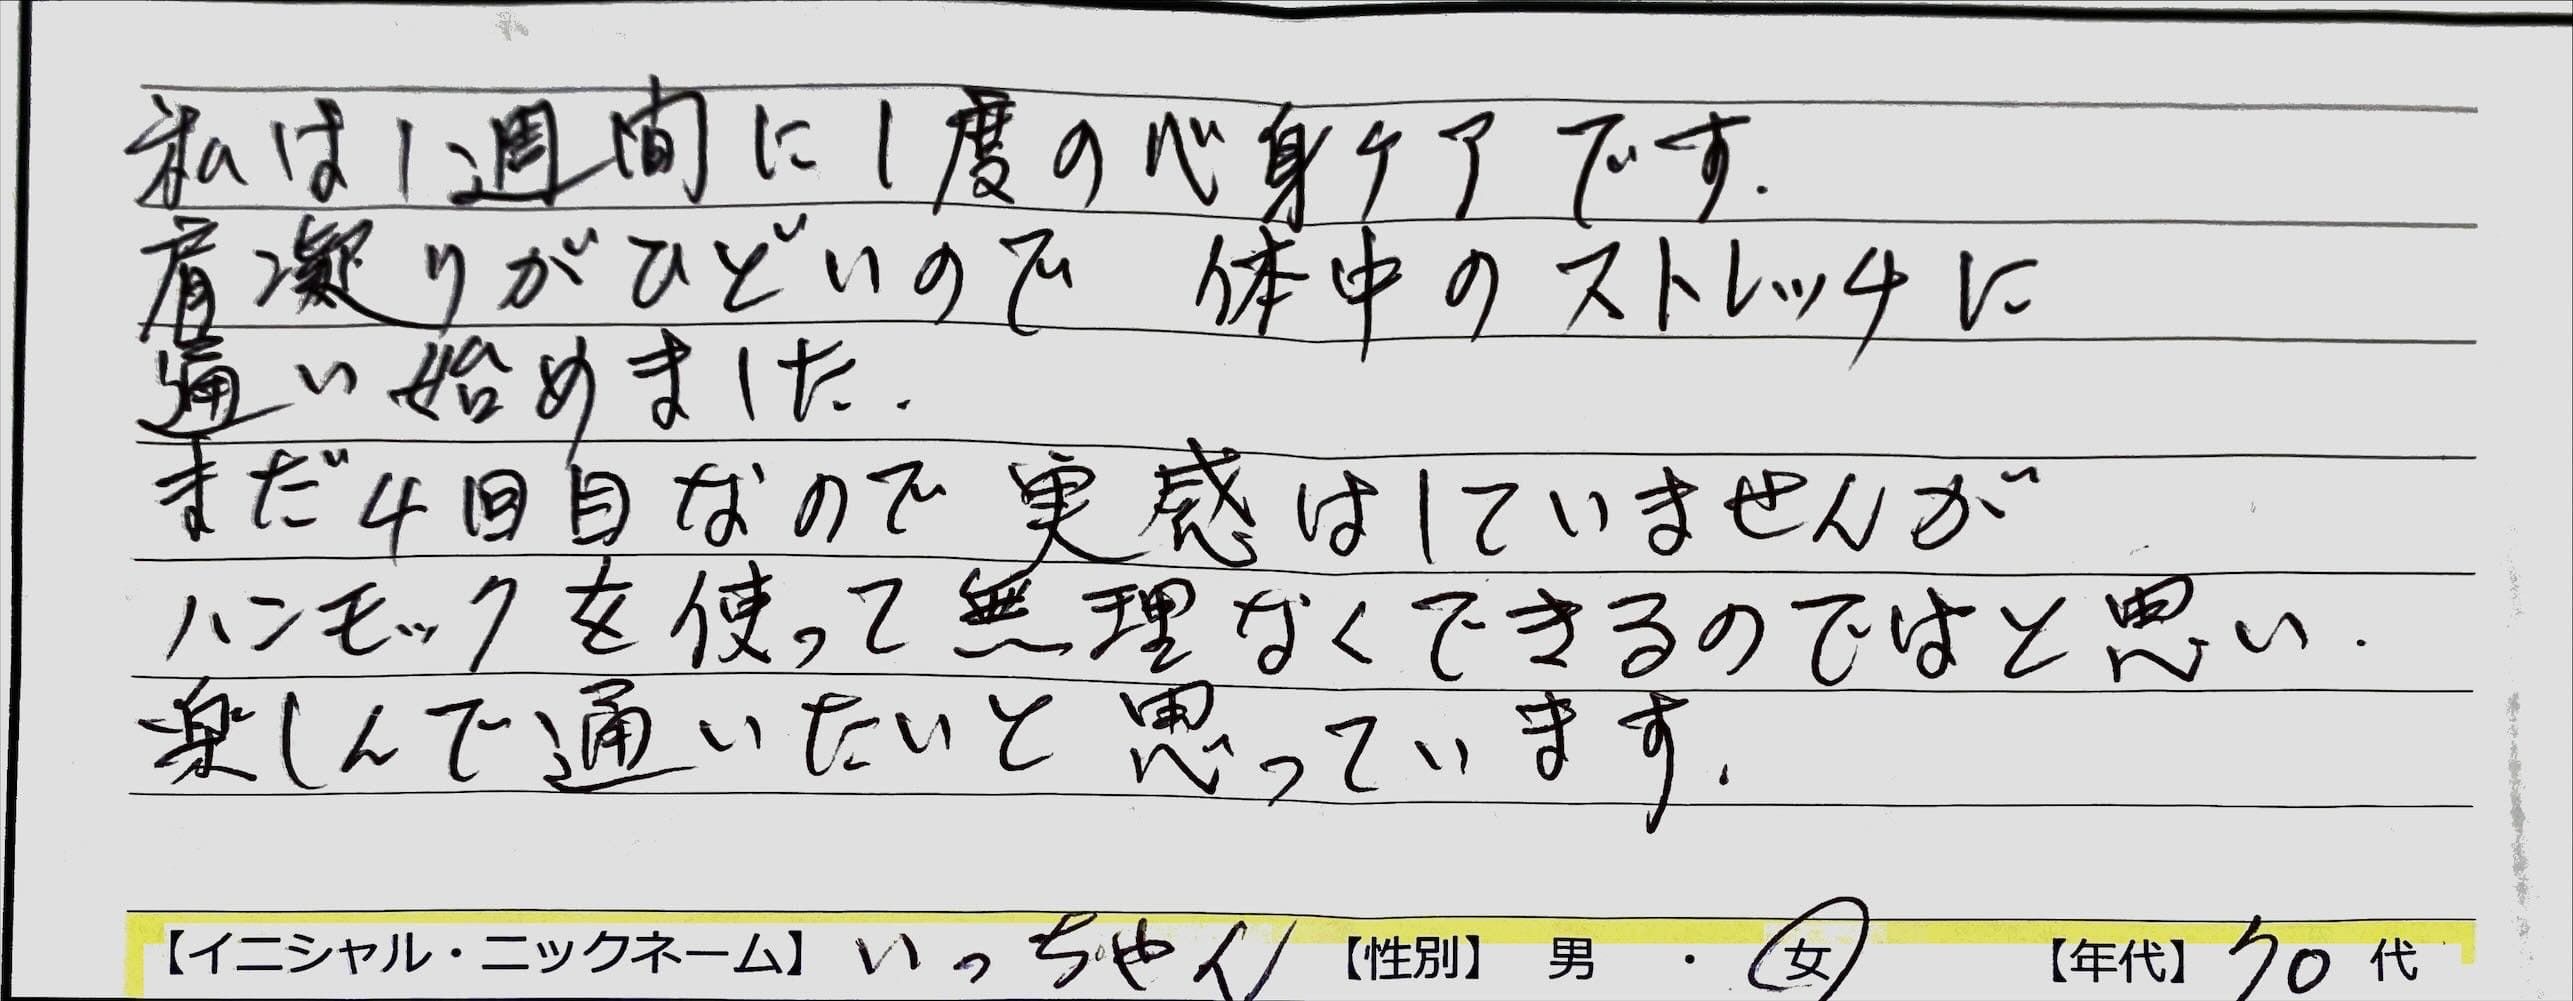 私は1週間に1度の心身ケアです.
肩凝りがひどいので 体中のストレッチに
通い始めました.
まだ4回目なので実感はしていませんが
ハンモックを使って無理なくできるのではと思い.
楽しんで通いたいと思っています.
【イニシャル・ニックネーム】 いっちゃん 【性別】 男 ・ 女 【年代】 70 代